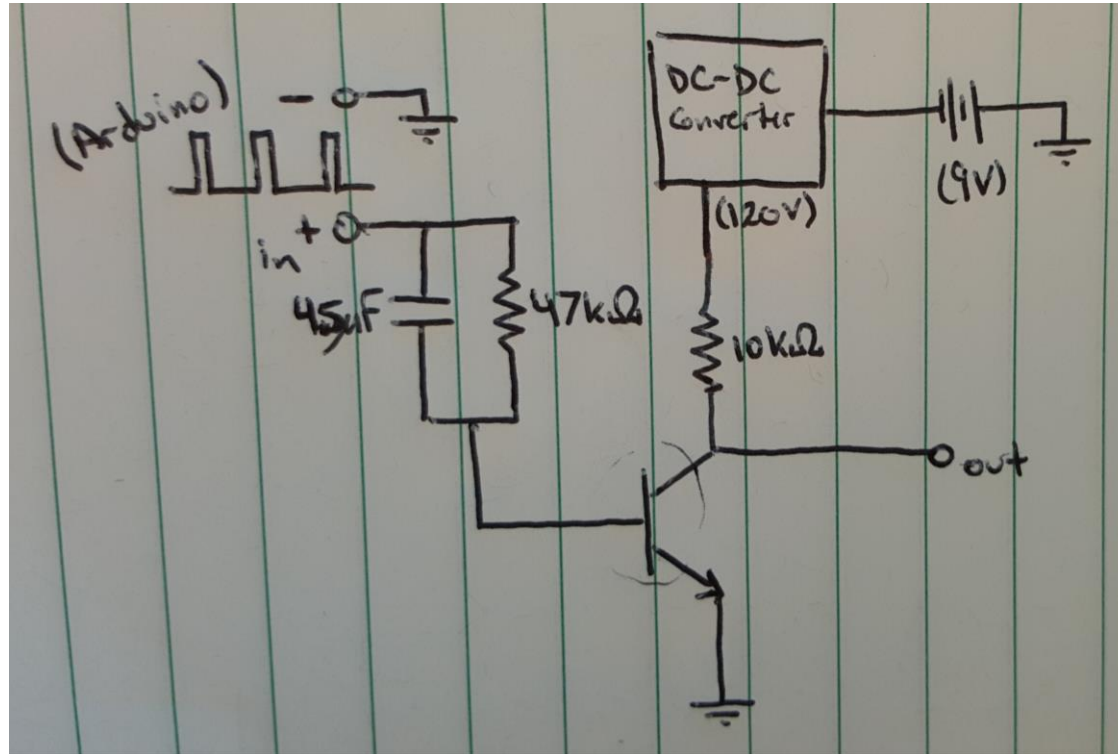 (Arduino)
-
+
in
45µF
47kΩ
DC-DC
Converter
(120V)
(9V)
10kΩ
out